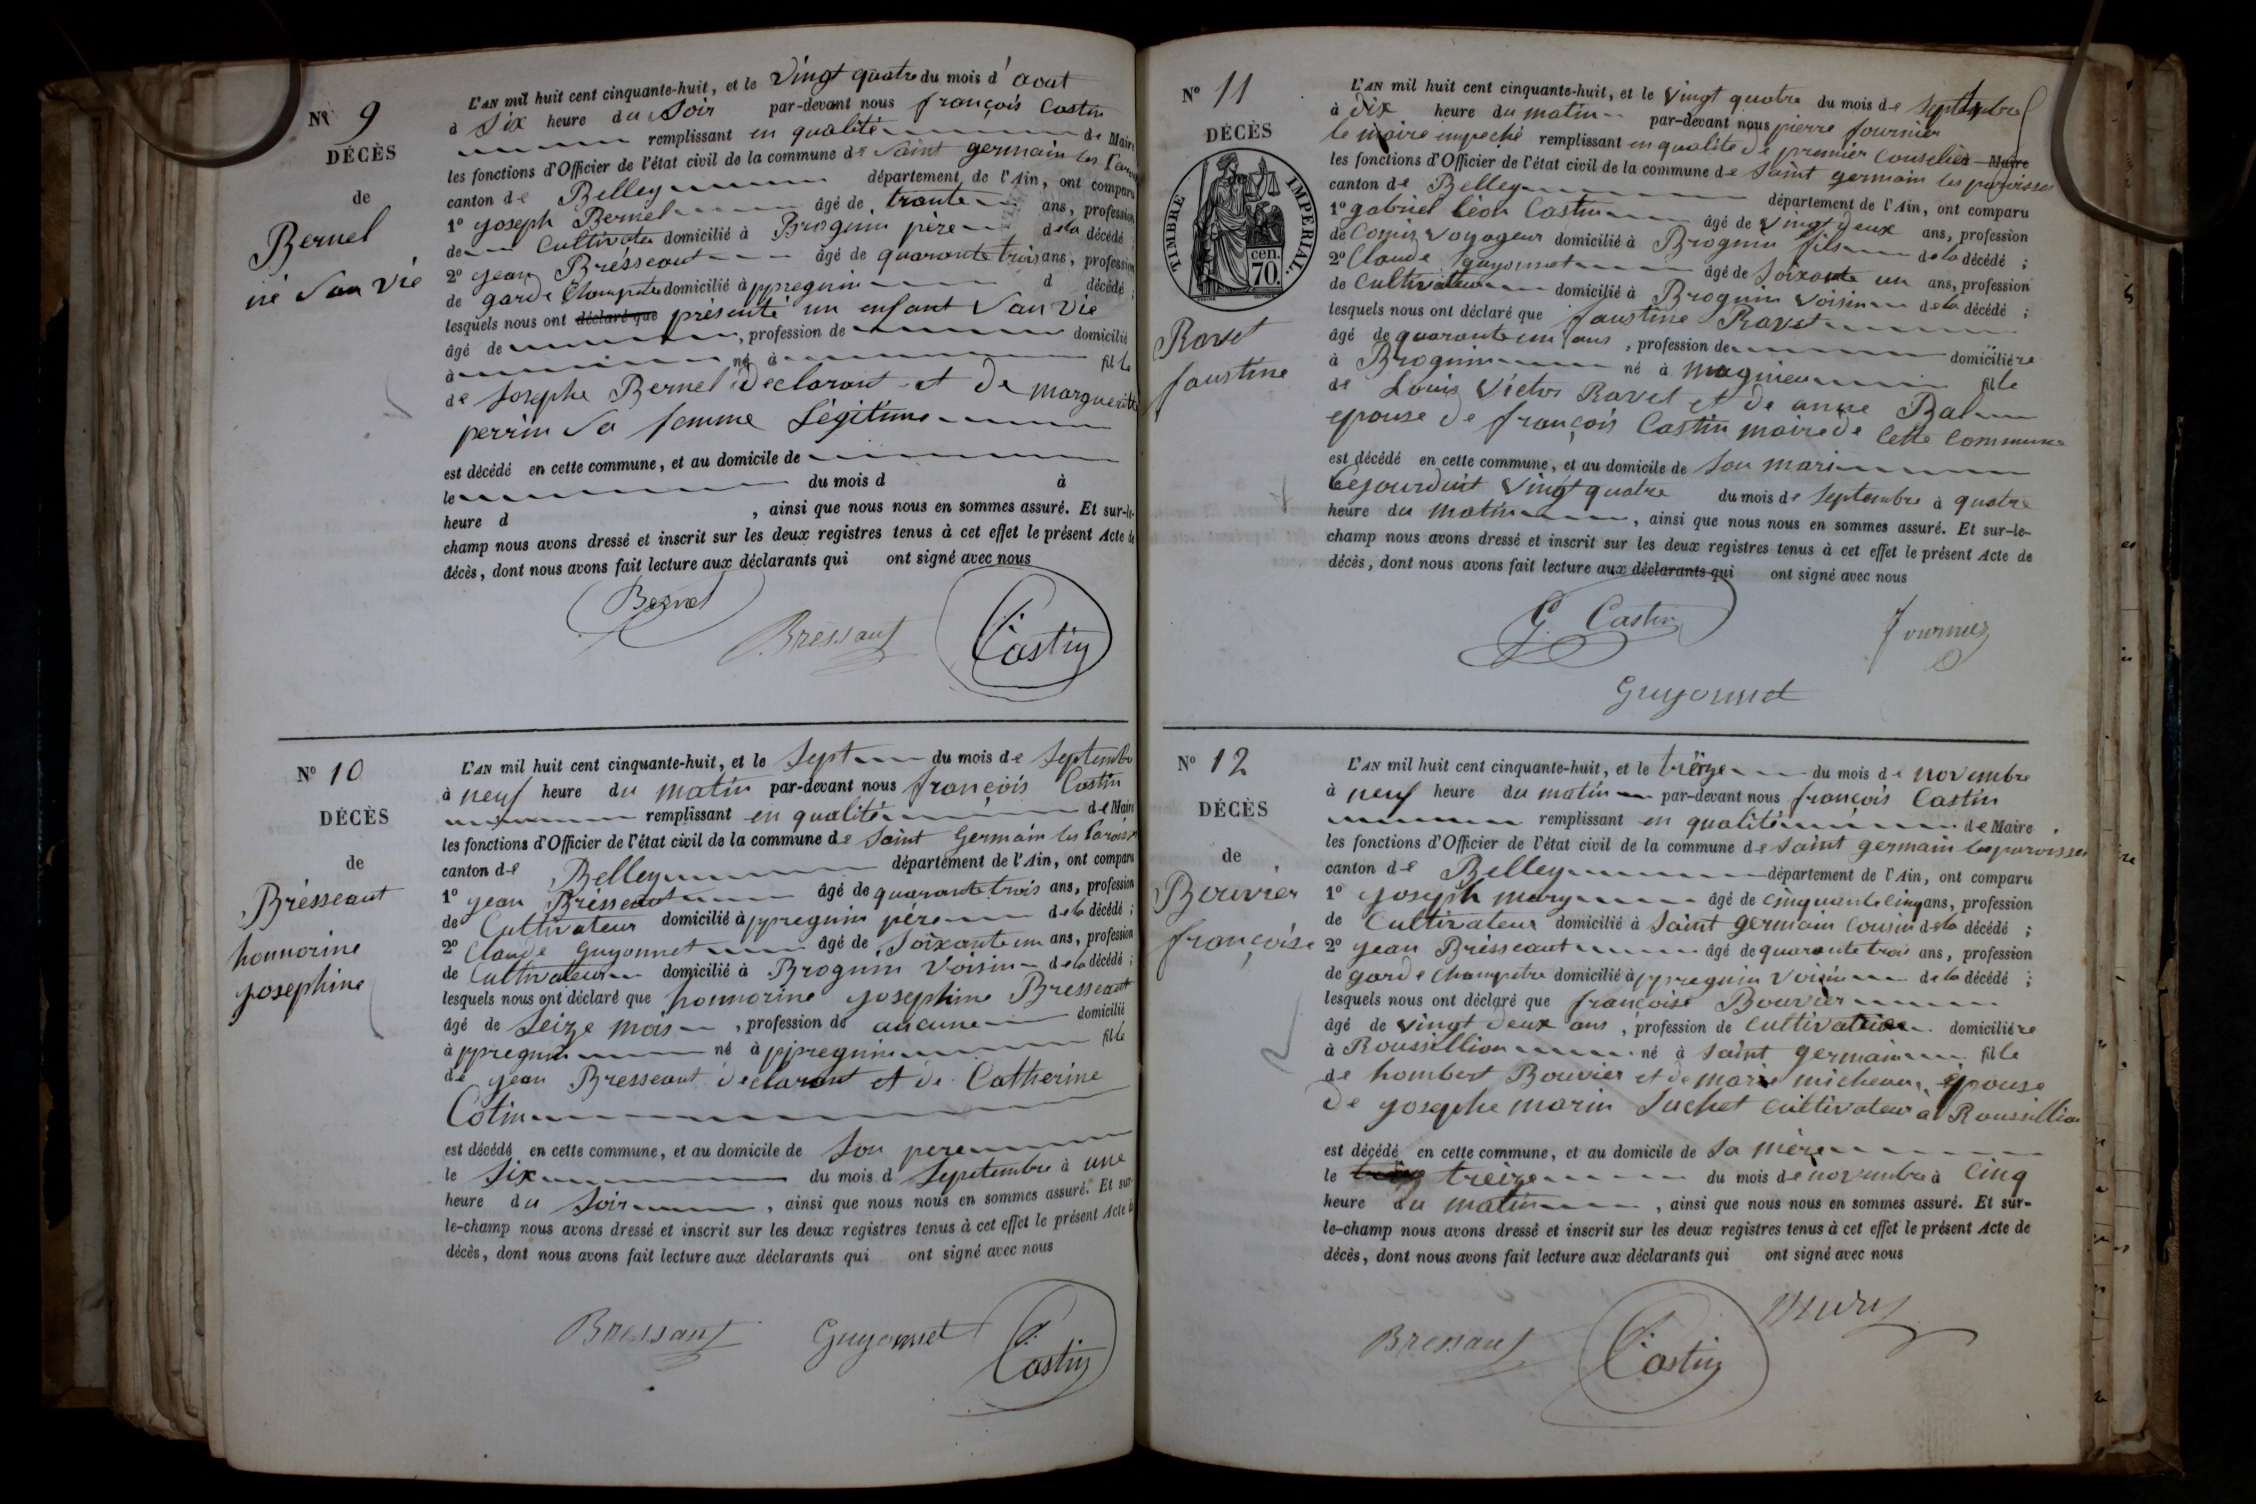 N° 9
DÉCÈS
de
Bernel
né san vie
L'AN mil huit cent cinquante-huit, et le vingt quatre du mois d'aout
à six heure du soir par-devant nous françois Castin
remplissant en qualité de Maire
les fonctions d'Officier de l'état civil de la commune de Saint germain les
canton de Belley département de l'Ain, ont comparu
1° joseph Bernel âgé de trante ans, profession
de Cultivater domicilié à Brognin père de la décédé ;
2° jean Brésseaut âgé de quarante trois ans, profession
de garde Champetre domicilié à ppregnin d décédé ;
lesquels nous ont déclaré que présenté un enfant san vie
âgé de , profession de domicilié
à né à fille
de Josephe Bernel déclarant et de marguerite
perrin sa femme légitime
est décédé en cette commune, et au domicile de
le du mois d à
heure d , ainsi que nous nous en sommes assuré. Et sur-le-
champ nous avons dressé et inscrit sur les deux registres tenus à cet effet le présent Acte de
décès, dont nous avons fait lecture aux déclarants qui ont signé avec nous
Bernel
Bressaut
Castin
N° 10
DÉCÈS
de
Brésseaut
honnorine
josephine
L'AN mil huit cent cinquante-huit, et le sept du mois de septembre
à neuf heure du matin par-devant nous françois Castin
remplissant en qualité de Maire
les fonctions d'Officier de l'état civil de la commune de Saint Germain les Paroisses
canton de Belley département de l'Ain, ont comparu
1° jean Brésseaut âgé de quarante trois ans, profession
de Cultivateur domicilié à ppregnin père de la décédé ;
2° Claude guyonnet âgé de soixante un ans, profession
de Cultivateur domicilié à Brognin Voisin de la décédé ;
lesquels nous ont déclaré que honnorine josephine Bresseaut
âgé de seize mois , profession de aucune domicilié
à ppregnin né à ppregnin fille
de jean Bresseaut déclarant et de Catherine
Cotin
est décédé en cette commune, et au domicile de son pere
le six du mois d septembre à une
heure du soir , ainsi que nous nous en sommes assuré. Et sur-
le-champ nous avons dressé et inscrit sur les deux registres tenus à cet effet le présent Acte de
décès, dont nous avons fait lecture aux déclarants qui ont signé avec nous
Bressaut
Guyonnet
Castin
N° 11
DÉCÈS
TIMBRE IMPERIAL.
cen.
70.
Ravet
faustine
L'AN mil huit cent cinquante-huit, et le vingt quatre du mois de septembre
à dix heure du matin par-devant nous pierre fournier
le maire empeché remplissant en qualité de premier Conselier Maire
les fonctions d'Officier de l'état civil de la commune de Saint germain les paroisses
canton de Belley département de l'Ain, ont comparu
1° gabriel léon Castin âgé de vingt deux ans, profession
de Comis voyageur domicilié à Brognin fils de la décédé ;
2° Claude guyonnet âgé de soixante un ans, profession
de Cultivateur domicilié à Brognin Voisin de la décédé ;
lesquels nous ont déclaré que faustine Ravet
âgé de quarante un ans , profession de domicilière
à Brognin né à magnieu fille
de Louis Victor Ravet et de anne Bal
epouse de françois Castin maire de Cette Commune
est décédé en cette commune, et au domicile de son mari
Cejourduit vingt quatre du mois de septembre à quatre
heure du matin , ainsi que nous nous en sommes assuré. Et sur-le-
champ nous avons dressé et inscrit sur les deux registres tenus à cet effet le présent Acte de
décès, dont nous avons fait lecture aux déclarants qui ont signé avec nous
G. Castin
fournier
Guyonnet
N° 12
DÉCÈS
de
Bouvier
françoise
L'AN mil huit cent cinquante-huit, et le treize du mois de novembre
à neuf heure du matin par-devant nous françois Castin
remplissant en qualité de Maire
les fonctions d'Officier de l'état civil de la commune de Saint germain les paroisses
canton de Belley département de l'Ain, ont comparu
1° joseph mury âgé de cinquante cinq ans, profession
de Cultivateur domicilié à Saint germain Cousin de la décédé ;
2° jean Brésseaut âgé de quarante trois ans, profession
de garde Champetre domicilié à ppregnin voisin de la décédé ;
lesquels nous ont déclaré que françoise Bouvier
âgé de vingt deux ans , profession de Cultivatrice domicilière
à Roussillion né à Saint germain fille
de hombert Bouvier et de marie micheau épouse
de josephe marin Juchet Cultivateur à Roussillion
est décédé en cette commune, et au domicile de sa mère
le treize du mois de novembre à Cinq
heure du matin , ainsi que nous nous en sommes assuré. Et sur-
le-champ nous avons dressé et inscrit sur les deux registres tenus à cet effet le présent Acte de
décès, dont nous avons fait lecture aux déclarants qui ont signé avec nous
Bressaut
Castin
Mury